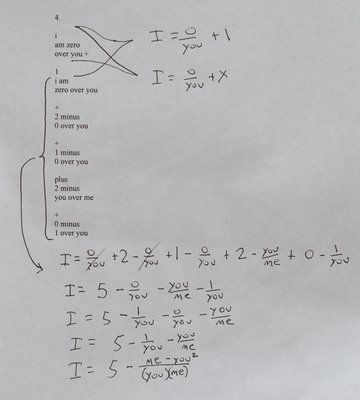 4.
i
am zero
over you +
I = 0/you + 1
1
i am
zero over you
I = 0/you + x
+
2 minus
0 over you
+
1 minus
0 over you
plus
2 minus
you over me
+
0 minus
1 over you
I = 0/you + 2 - 0/you + 1 - 0/you + 2 - you/me + 0 - 1/you
I = 5 - 0/you - you/me - 1/you
I = 5 - 1/you - 0/you - you/me
I = 5 - 1/you - you/me
I = 5 - me - you²/(you)(me)